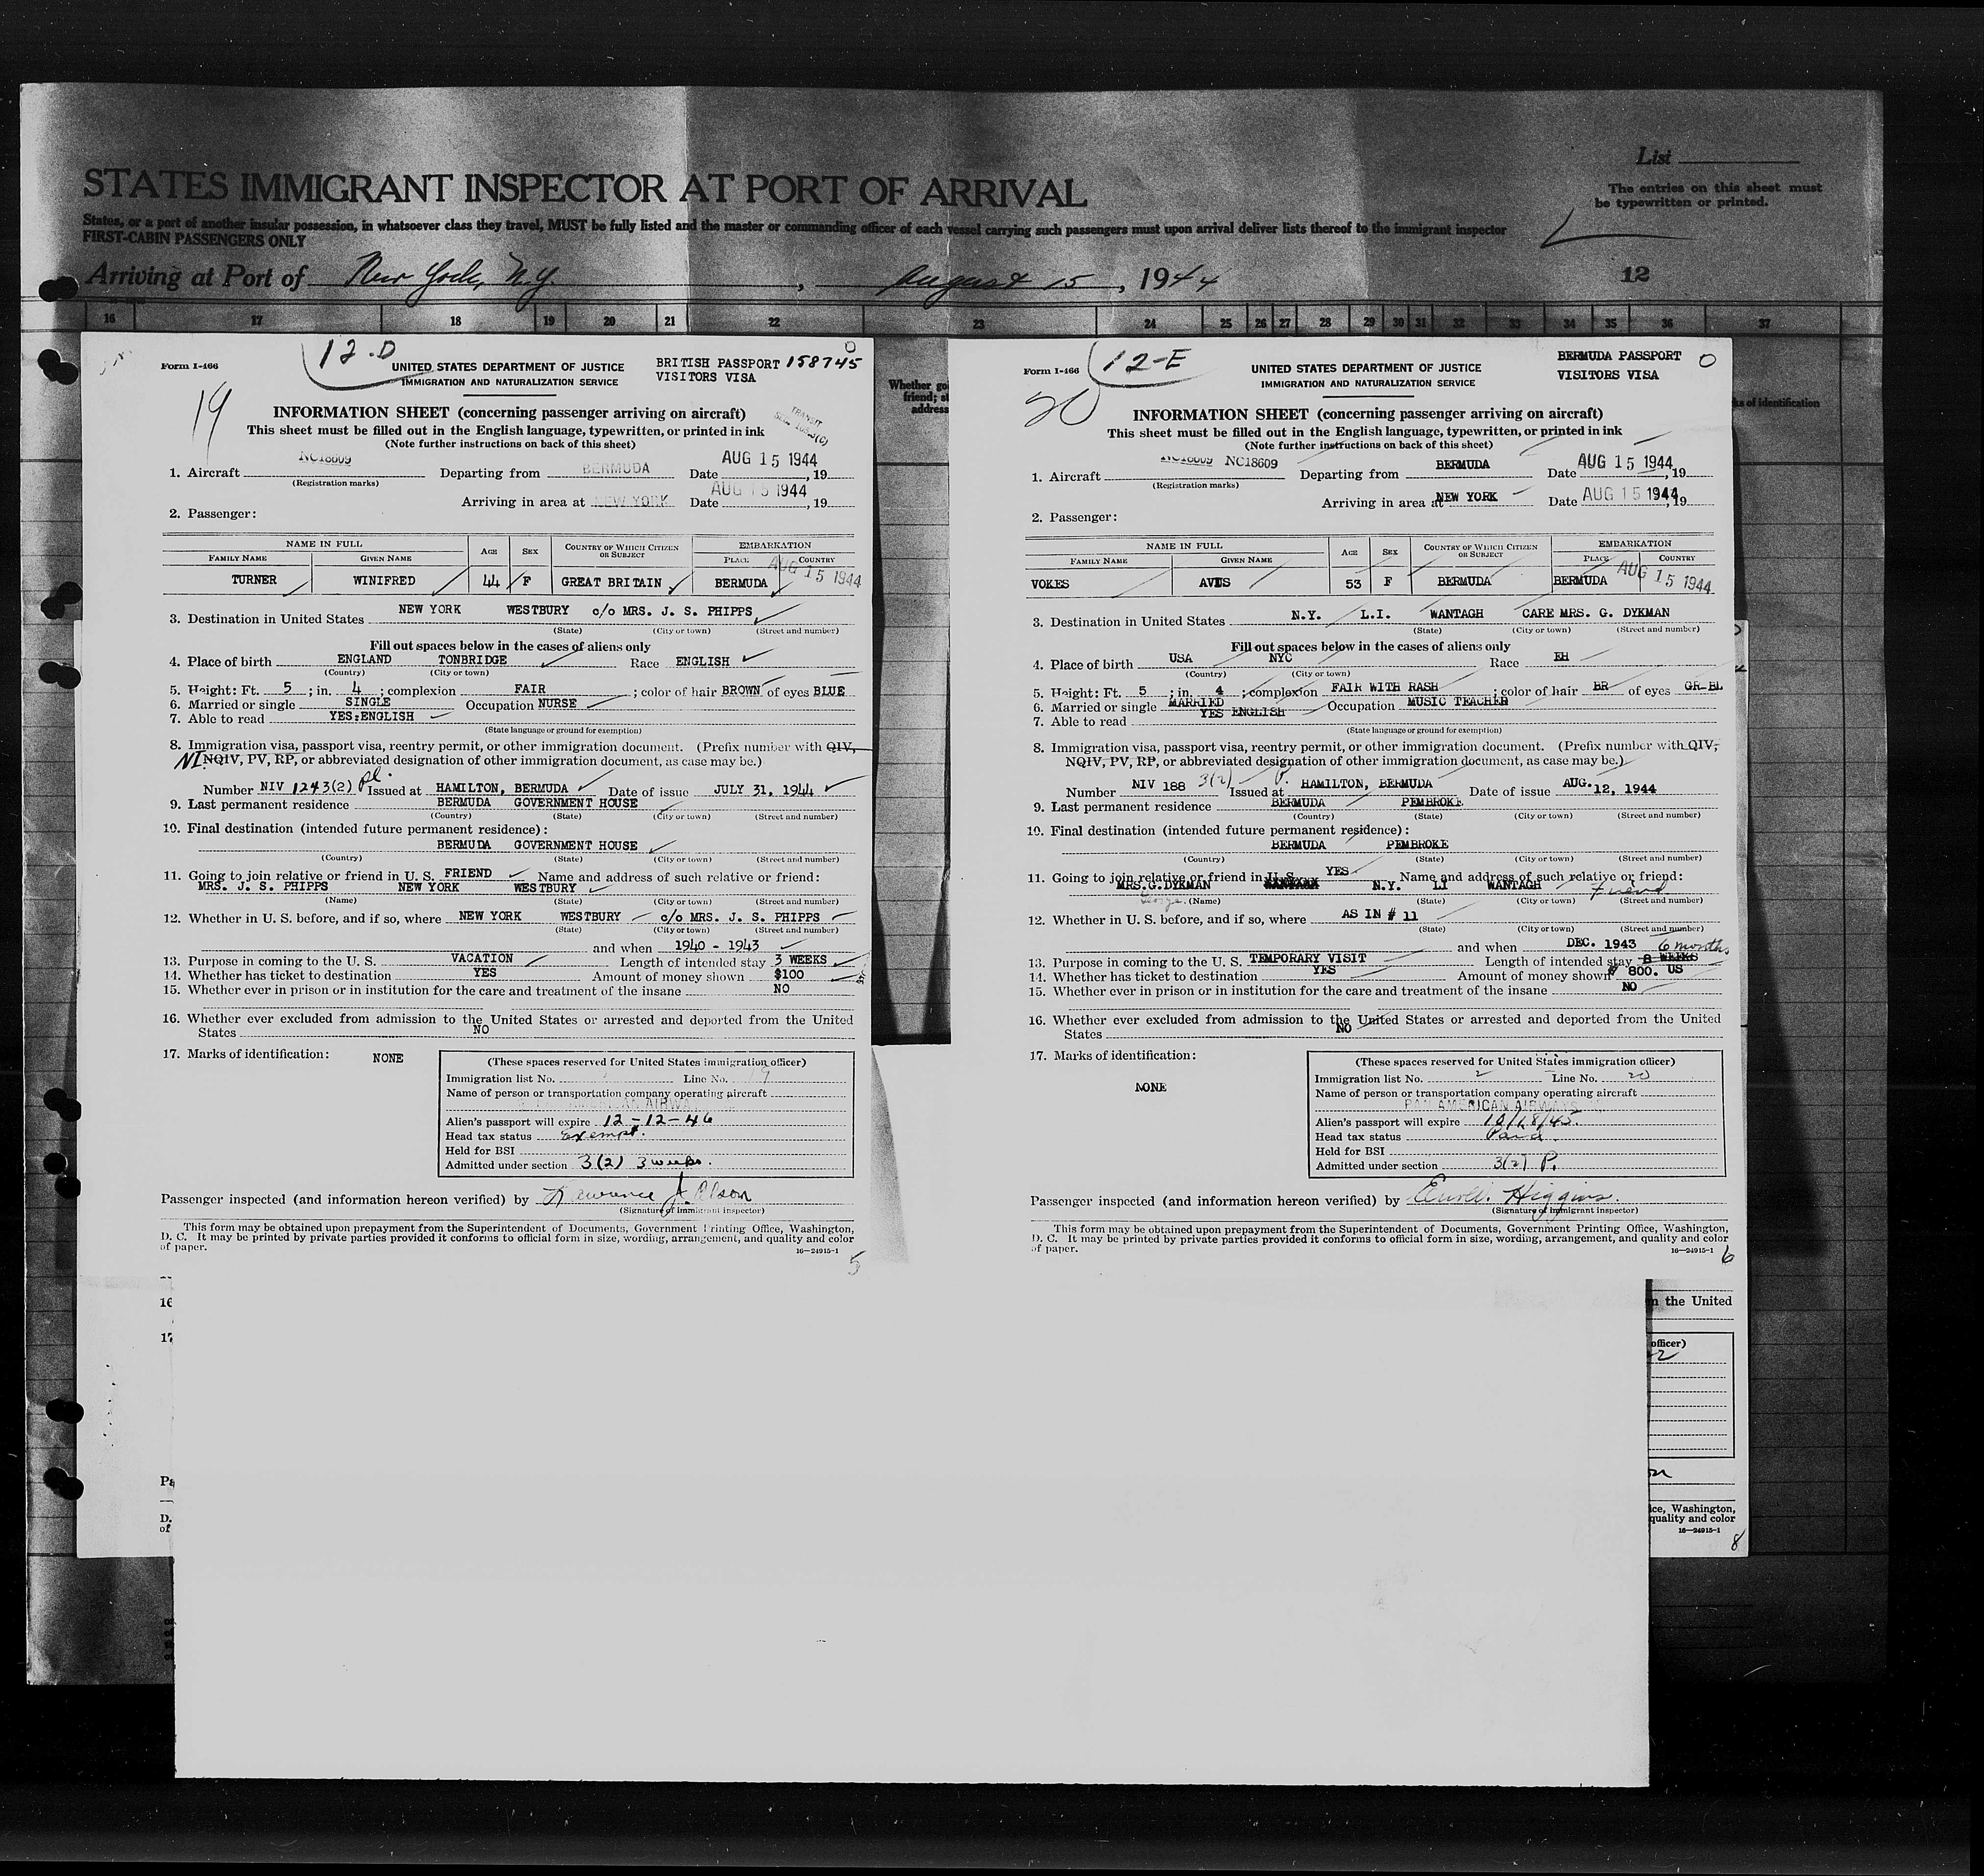 List
STATES IMMIGRANT INSPECTOR AT PORT OF ARRIVAL
The entries on this sheet must
be typewritten or printed.
States, or a port of another insular possession, in whatsoever class they travel, MUST be fully listed and the master or commanding officer of each vessel carrying such passengers must upon arrival deliver lists thereof to the immigrant inspector
FIRST-CABIN PASSENGERS ONLY
Arriving at Port of New York, N.Y., August 15, 1944
12
16 17 18 19 20 21 22 23 24 25 26 27 28 29 30 31 32 33 34 35 36 37
Form I-466
12-D
UNITED STATES DEPARTMENT OF JUSTICE
IMMIGRATION AND NATURALIZATION SERVICE
BRITISH PASSPORT 158745
VISITORS VISA
19
INFORMATION SHEET (concerning passenger arriving on aircraft)
TRANSIT
This sheet must be filled out in the English language, typewritten, or printed in ink
(Note further instructions on back of this sheet)
1. Aircraft NC18609 Departing from BERMUDA Date AUG 15 1944, 19
(Registration marks)
Arriving in area at NEW YORK Date AUG 15 1944, 19
2. Passenger:
NAME IN FULL AGE SEX COUNTRY OF WHICH CITIZEN OR SUBJECT EMBARKATION
FAMILY NAME GIVEN NAME PLACE COUNTRY
TURNER WINIFRED 44 F GREAT BRITAIN BERMUDA AUG 15 1944
3. Destination in United States NEW YORK WESTBURY c/o MRS. J. S. PHIPPS
(State) (City or town) (Street and number)
Fill out spaces below in the cases of aliens only
4. Place of birth ENGLAND TONBRIDGE Race ENGLISH
(Country) (City or town)
5. Height: Ft. 5; in. 4; complexion FAIR; color of hair BROWN of eyes BLUE
6. Married or single SINGLE Occupation NURSE
7. Able to read YES:ENGLISH
(State language or ground for exemption)
8. Immigration visa, passport visa, reentry permit, or other immigration document. (Prefix number with QIV,
NI NQIV, PV, RP, or abbreviated designation of other immigration document, as case may be.)
Number NIV 1243(2) pl. Issued at HAMILTON, BERMUDA Date of issue JULY 31, 1944
9. Last permanent residence BERMUDA GOVERNMENT HOUSE
(Country) (State) (City or town) (Street and number)
10. Final destination (intended future permanent residence):
BERMUDA GOVERNMENT HOUSE
(Country) (State) (City or town) (Street and number)
11. Going to join relative or friend in U. S. FRIEND Name and address of such relative or friend:
MRS. J. S. PHIPPS NEW YORK WESTBURY
(Name) (State) (City or town) (Street and number)
12. Whether in U. S. before, and if so, where NEW YORK WESTBURY c/o MRS. J. S. PHIPPS
(State) (City or town) (Street and number)
and when 1940 - 1943
13. Purpose in coming to the U. S. VACATION Length of intended stay 3 WEEKS
14. Whether has ticket to destination YES Amount of money shown $100
15. Whether ever in prison or in institution for the care and treatment of the insane NO
16. Whether ever excluded from admission to the United States or arrested and deported from the United
States NO
17. Marks of identification: NONE
(These spaces reserved for United States immigration officer)
Immigration list No. Line No. 19
Name of person or transportation company operating aircraft
AMERICAN AIRWA
Alien's passport will expire 12-12-46
Head tax status Exempt.
Held for BSI
Admitted under section 3(2) 3 weeks.
Passenger inspected (and information hereon verified) by Lawrence J. Olson
(Signature of immigrant inspector)
This form may be obtained upon prepayment from the Superintendent of Documents, Government Printing Office, Washington,
D. C. It may be printed by private parties provided it conforms to official form in size, wording, arrangement, and quality and color
of paper.
16—24915-1
5
Whether go
friend; st
address
ks of identification
Form I-466
12-E
UNITED STATES DEPARTMENT OF JUSTICE
IMMIGRATION AND NATURALIZATION SERVICE
BERMUDA PASSPORT
VISITORS VISA
20
INFORMATION SHEET (concerning passenger arriving on aircraft)
This sheet must be filled out in the English language, typewritten, or printed in ink
(Note further instructions on back of this sheet)
1. Aircraft NC18609 NC18609 Departing from BERMUDA Date AUG 15 1944, 19
(Registration marks)
Arriving in area at NEW YORK Date AUG 15 1944, 19
2. Passenger:
NAME IN FULL AGE SEX COUNTRY OF WHICH CITIZEN OR SUBJECT EMBARKATION
FAMILY NAME GIVEN NAME PLACE COUNTRY
VOKES AVIS 53 F BERMUDA BERMUDA AUG 15 1944
3. Destination in United States N.Y. L.I. WANTAGH CARE MRS. G. DYKMAN
(State) (City or town) (Street and number)
Fill out spaces below in the cases of aliens only
4. Place of birth USA NYC Race EH
(Country) (City or town)
5. Height: Ft. 5; in. 4; complexion FAIR WITH RASH; color of hair BR of eyes GR-BL
6. Married or single MARRIED Occupation MUSIC TEACHER
7. Able to read YES ENGLISH
(State language or ground for exemption)
8. Immigration visa, passport visa, reentry permit, or other immigration document. (Prefix number with QIV,
NQIV, PV, RP, or abbreviated designation of other immigration document, as case may be.)
Number NIV 188 3(2) P. Issued at HAMILTON, BERMUDA Date of issue AUG. 12, 1944
9. Last permanent residence BERMUDA PEMBROKE
(Country) (State) (City or town) (Street and number)
10. Final destination (intended future permanent residence):
BERMUDA PEMBROKE
(Country) (State) (City or town) (Street and number)
11. Going to join relative or friend in U. S. YES Name and address of such relative or friend:
MRS.G.DYKMAN N.Y. LI WANTAGH Friend
George (Name) (State) (City or town) (Street and number)
12. Whether in U. S. before, and if so, where AS IN # 11
(State) (City or town) (Street and number)
and when DEC. 1943 6 months
13. Purpose in coming to the U. S. TEMPORARY VISIT Length of intended stay 8 WEEKS
14. Whether has ticket to destination YES Amount of money shown $ 800. US
15. Whether ever in prison or in institution for the care and treatment of the insane NO
16. Whether ever excluded from admission to the United States or arrested and deported from the United
States NO
17. Marks of identification:
NONE
(These spaces reserved for United States immigration officer)
Immigration list No. 2 Line No. 20
Name of person or transportation company operating aircraft
PAN AMERICAN AIRWAYS
Alien's passport will expire 10/18/45.
Head tax status Paid.
Held for BSI
Admitted under section 3(2) P.
Passenger inspected (and information hereon verified) by Higgins.
(Signature of immigrant inspector)
This form may be obtained upon prepayment from the Superintendent of Documents, Government Printing Office, Washington,
D. C. It may be printed by private parties provided it conforms to official form in size, wording, arrangement, and quality and color
of paper.
16—24915-1
6
16
n the United
17
officer)
Pa
D.
of
ice, Washington,
quality and color
16—24915-1
8